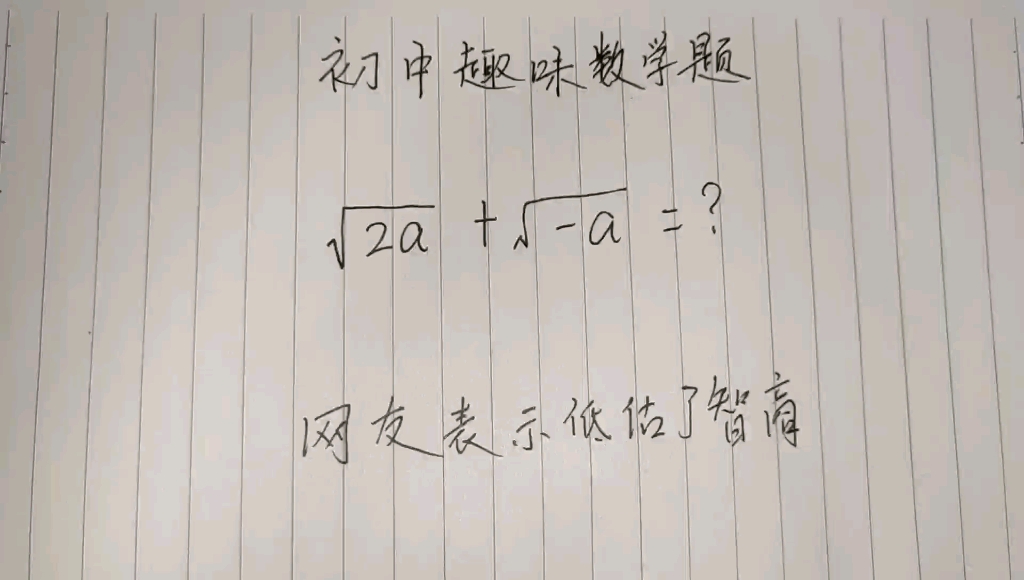 初中趣味数学题
√2a + √-a = ?
网友表示低估了智商